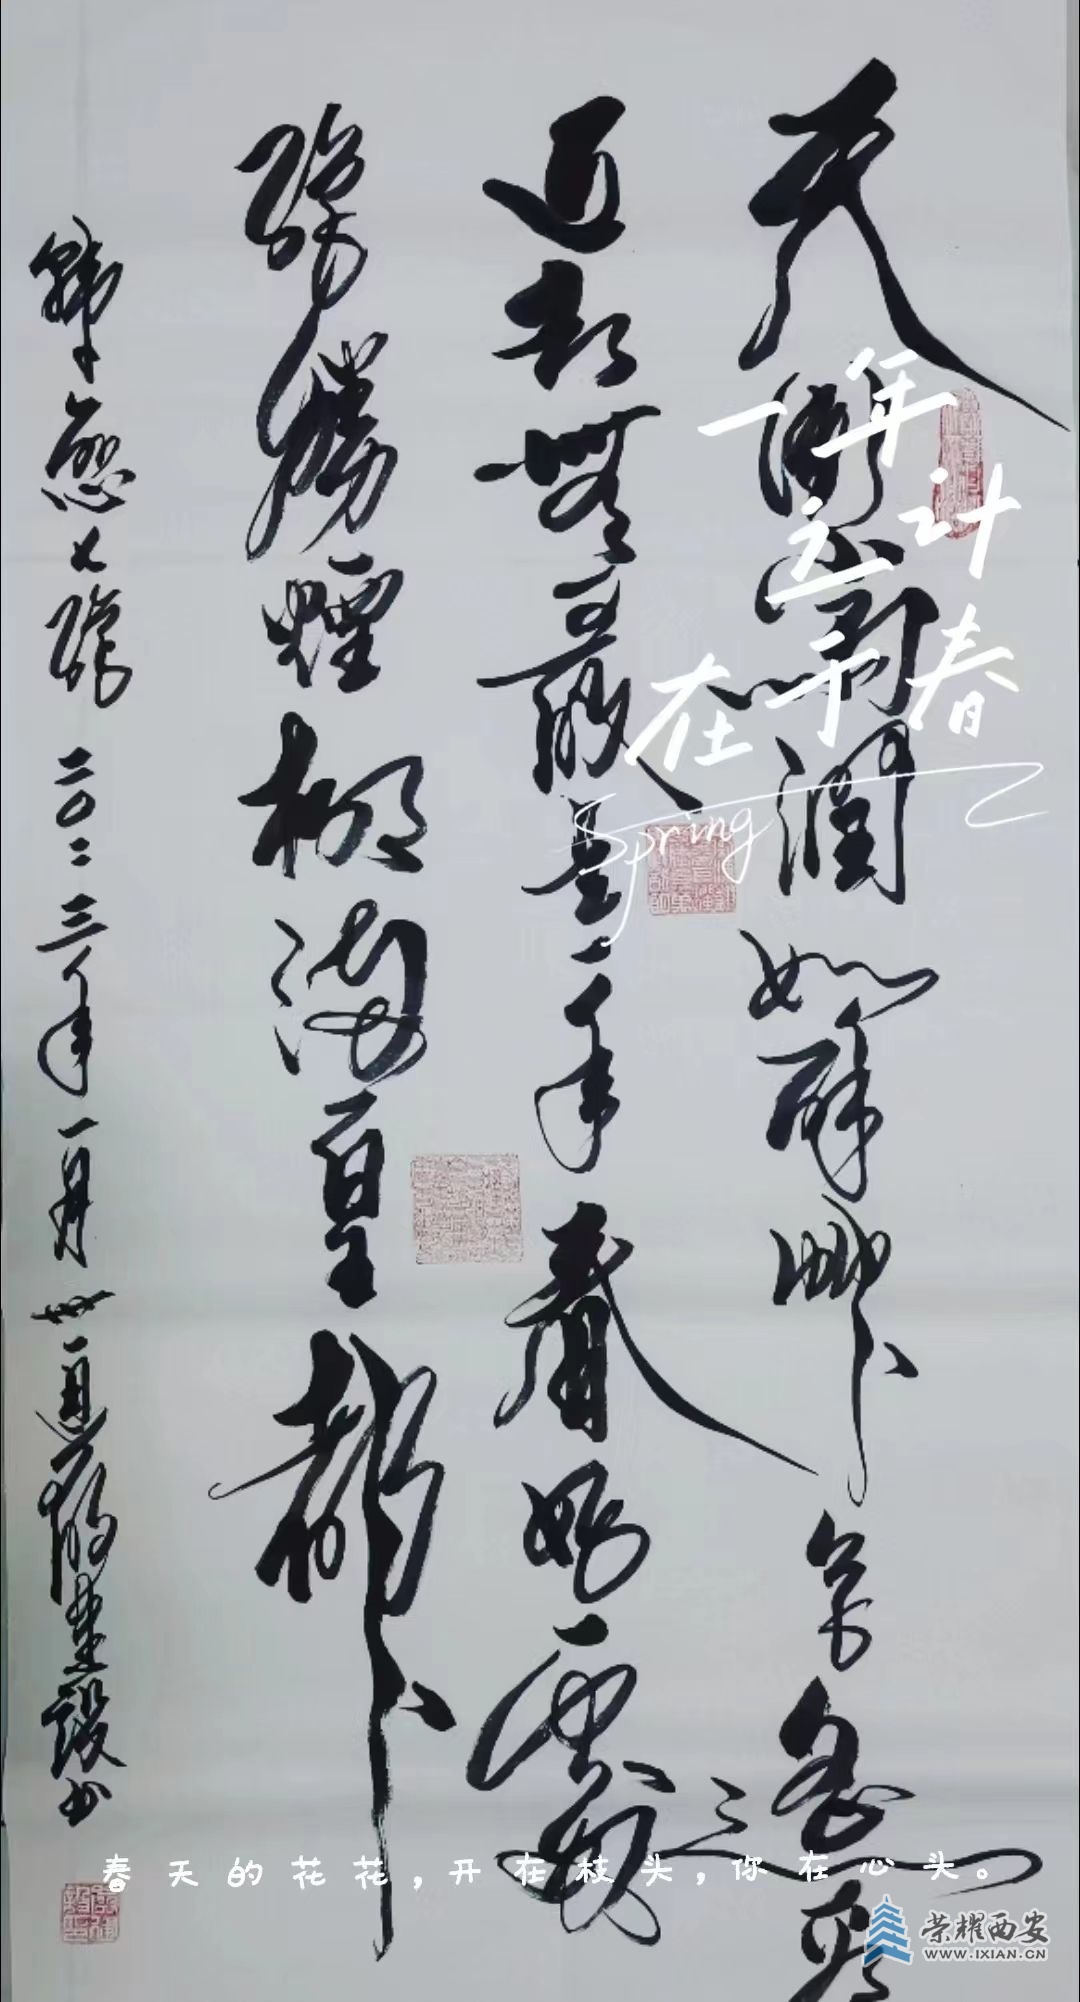 天街小雨潤如酥艸色遙看
近却無最是一年春好處
絕勝煙柳滿皇都
韓愈七絕 二〇二三年一月
一年
之计
在于春
Spring
春天的花花,开在枝头,你在心头。
荣耀西安
WWW.IXIAN.CN